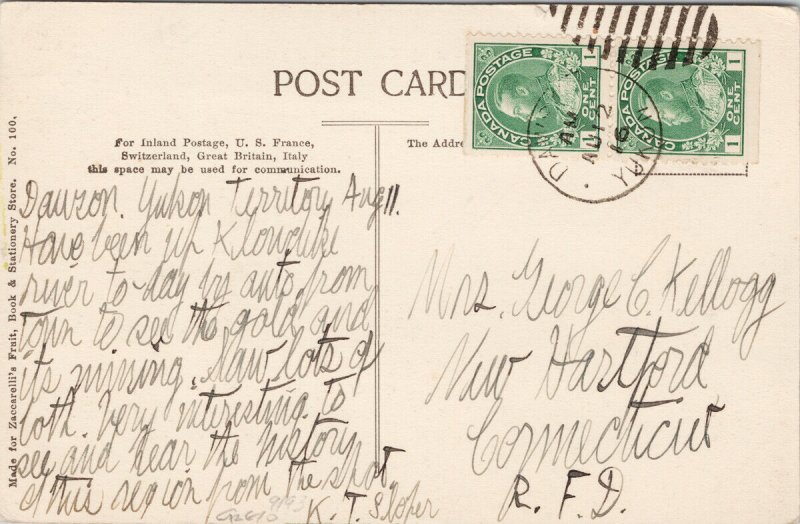 POST CARD
For Inland Postage, U. S. France,
Switzerland, Great Britain, Italy
this space may be used for communication.
The Addre
Made for Zaccarelli's Fruit, Book & Stationery Store. No. 100.
CANADA POSTAGE
1 ONE CENT 1
CANADA POSTAGE
1 ONE CENT 1
DAWSON
AM
AU 12
16
YUKON
Dawson. Yukon Territory Aug 11.
Have been up Klondike
river to-day by auto, from
Town to see the gold, and
its mining. Saw lots of
both. Very interesting to
see and hear the history
of this region from the spot.
K. T. Sloper
Mrs. George C. Kellogg
New Hartford
Connecticut
R. F. D.